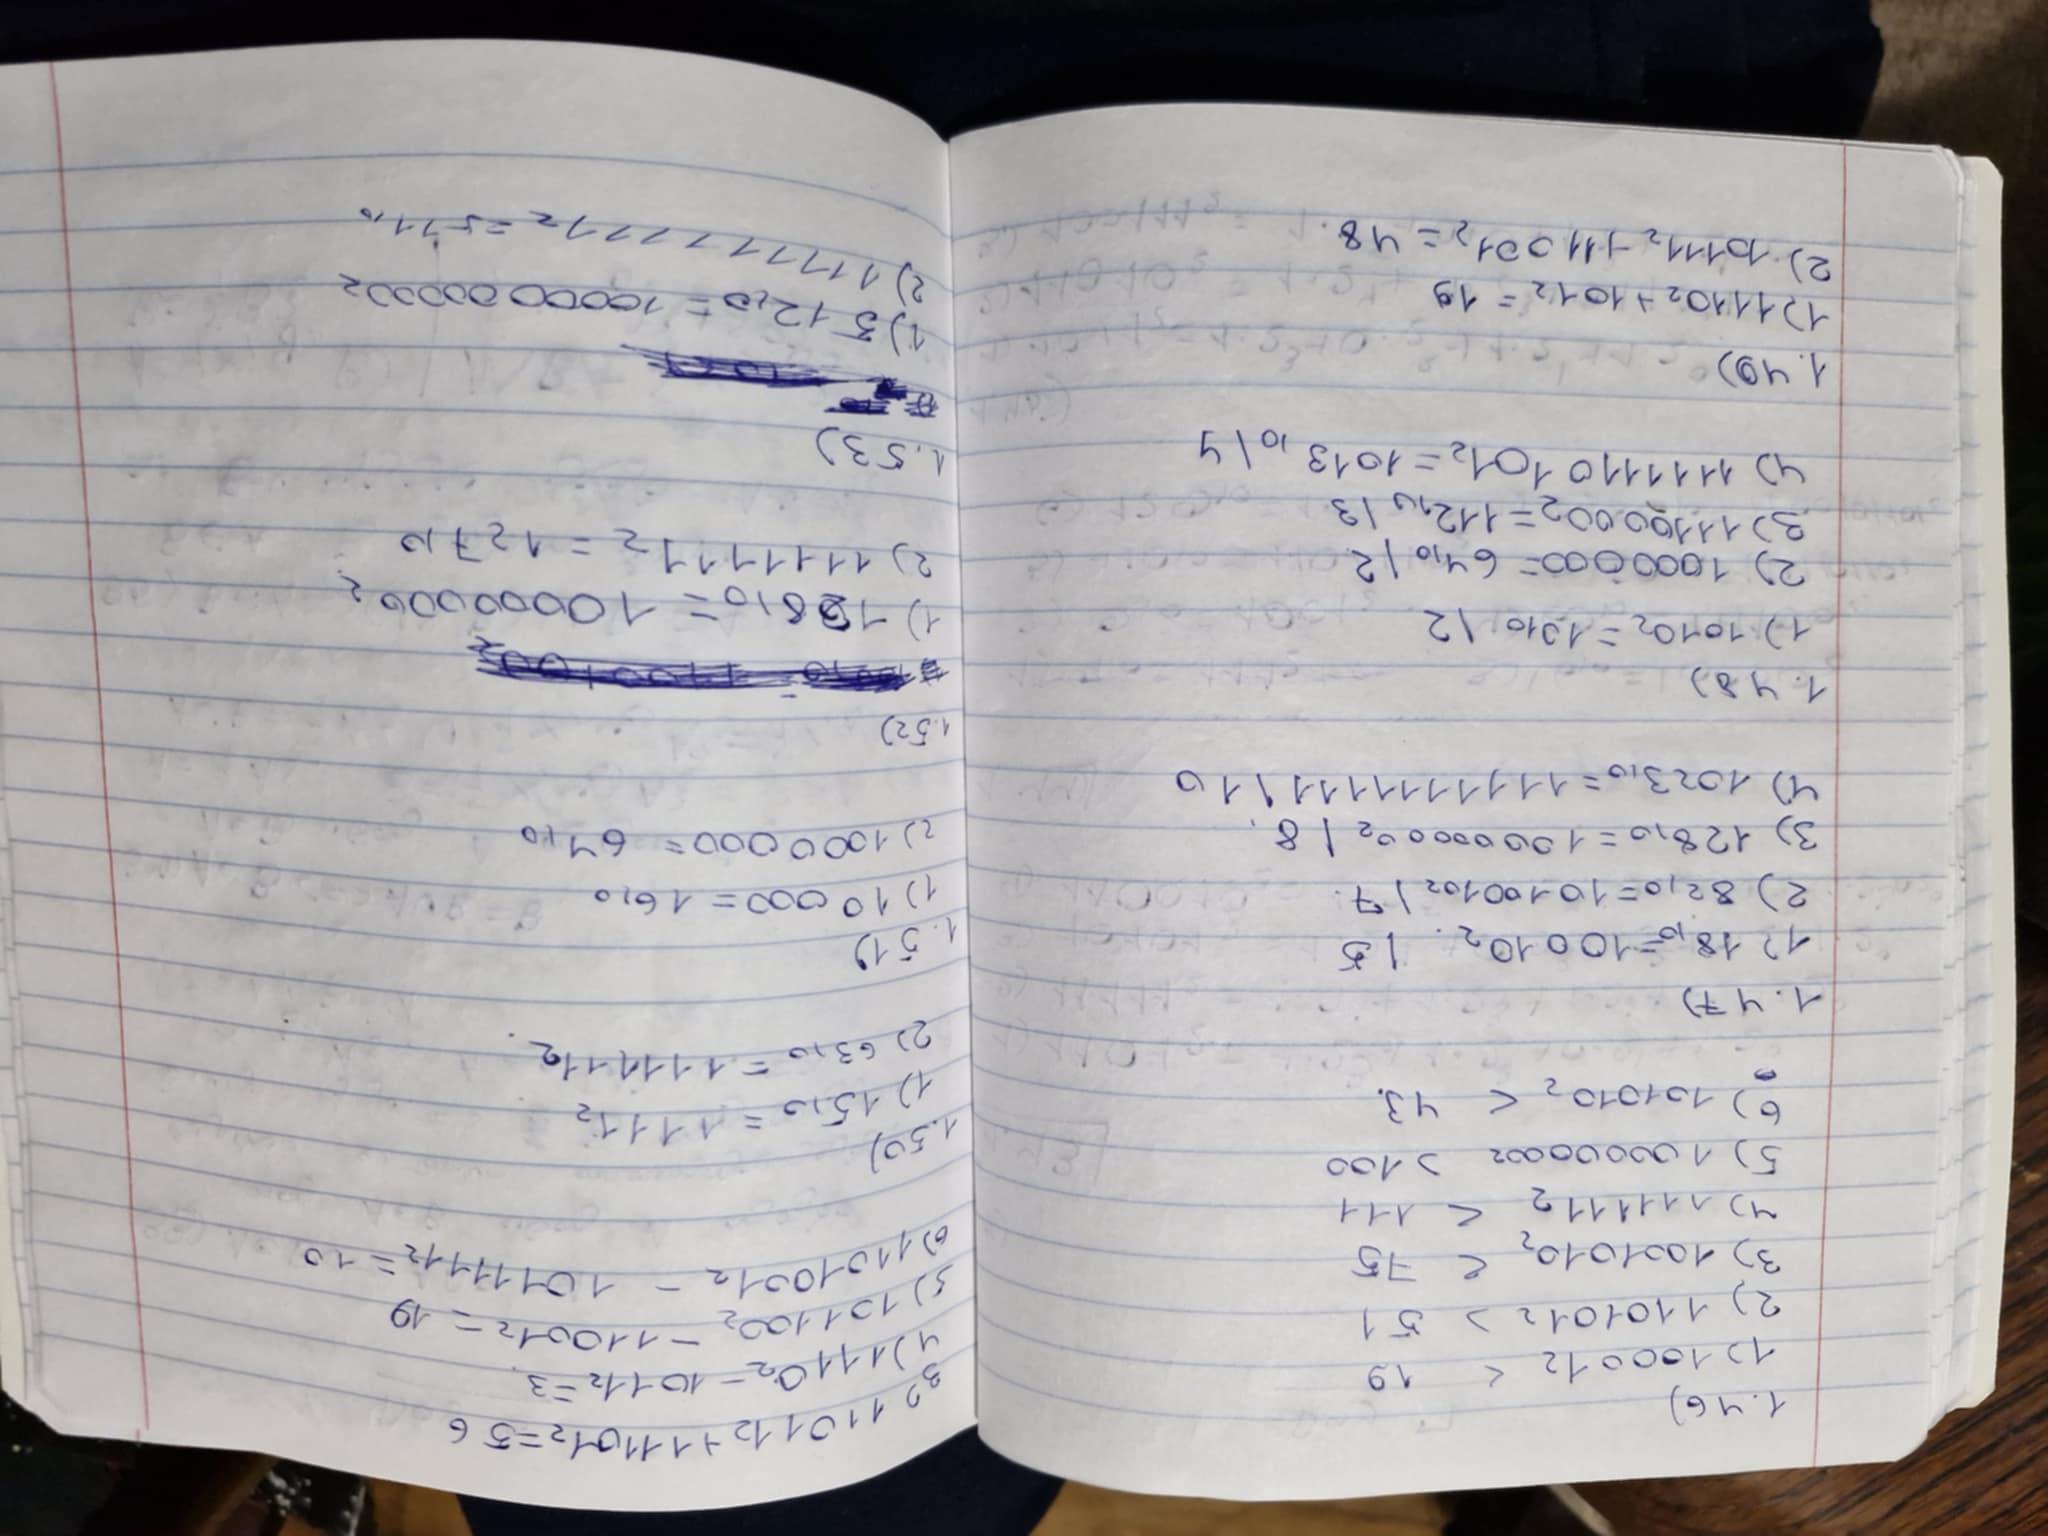 1.46)
1) 10001₂ < 19
2) 110101₂ > 51
3) 1001010₂ < 75
4) 111111₂ < 111
5) 10000000₂ > 100
6) 101010₂ < 43.
1.47)
1) 18₁₀ = 10010₂. | 5
2) 82₁₀ = 1010010₂ | 7.
3) 128₁₀ = 10000000₂ | 8.
4) 1023₁₀ = 1111111111 | 10
1.48)
1) 1010₂ = 10₁₀ | 2
2) 1000000 = 64₁₀ | 2
3) 1110000₂ = 112₁₀ | 3
4) 1111110101₂ = 1013₁₀ | 4
1.49)
1) 1110₂ + 101₂ = 19
2) 10111₂ + 11001₂ = 48
3) 11011₂ + 11101₂ = 56
4) 1110₂ - 1011₂ = 3
5) 101100₂ - 11001₂ = 19
6) 1101001₂ - 1011111₂ = 10
1.50)
1) 15₁₀ = 1111₂
2) 63₁₀ = 111111₂.
1.51)
1) 10000 = 16₁₀
2) 1000000 = 64₁₀
1.52)
1) 128₁₀ = 10000000₂
2) 1111111₂ = 127₁₀
1.53)
1) 512₁₀ = 1000000000₂
2) 111111111₂ = 511₁₀